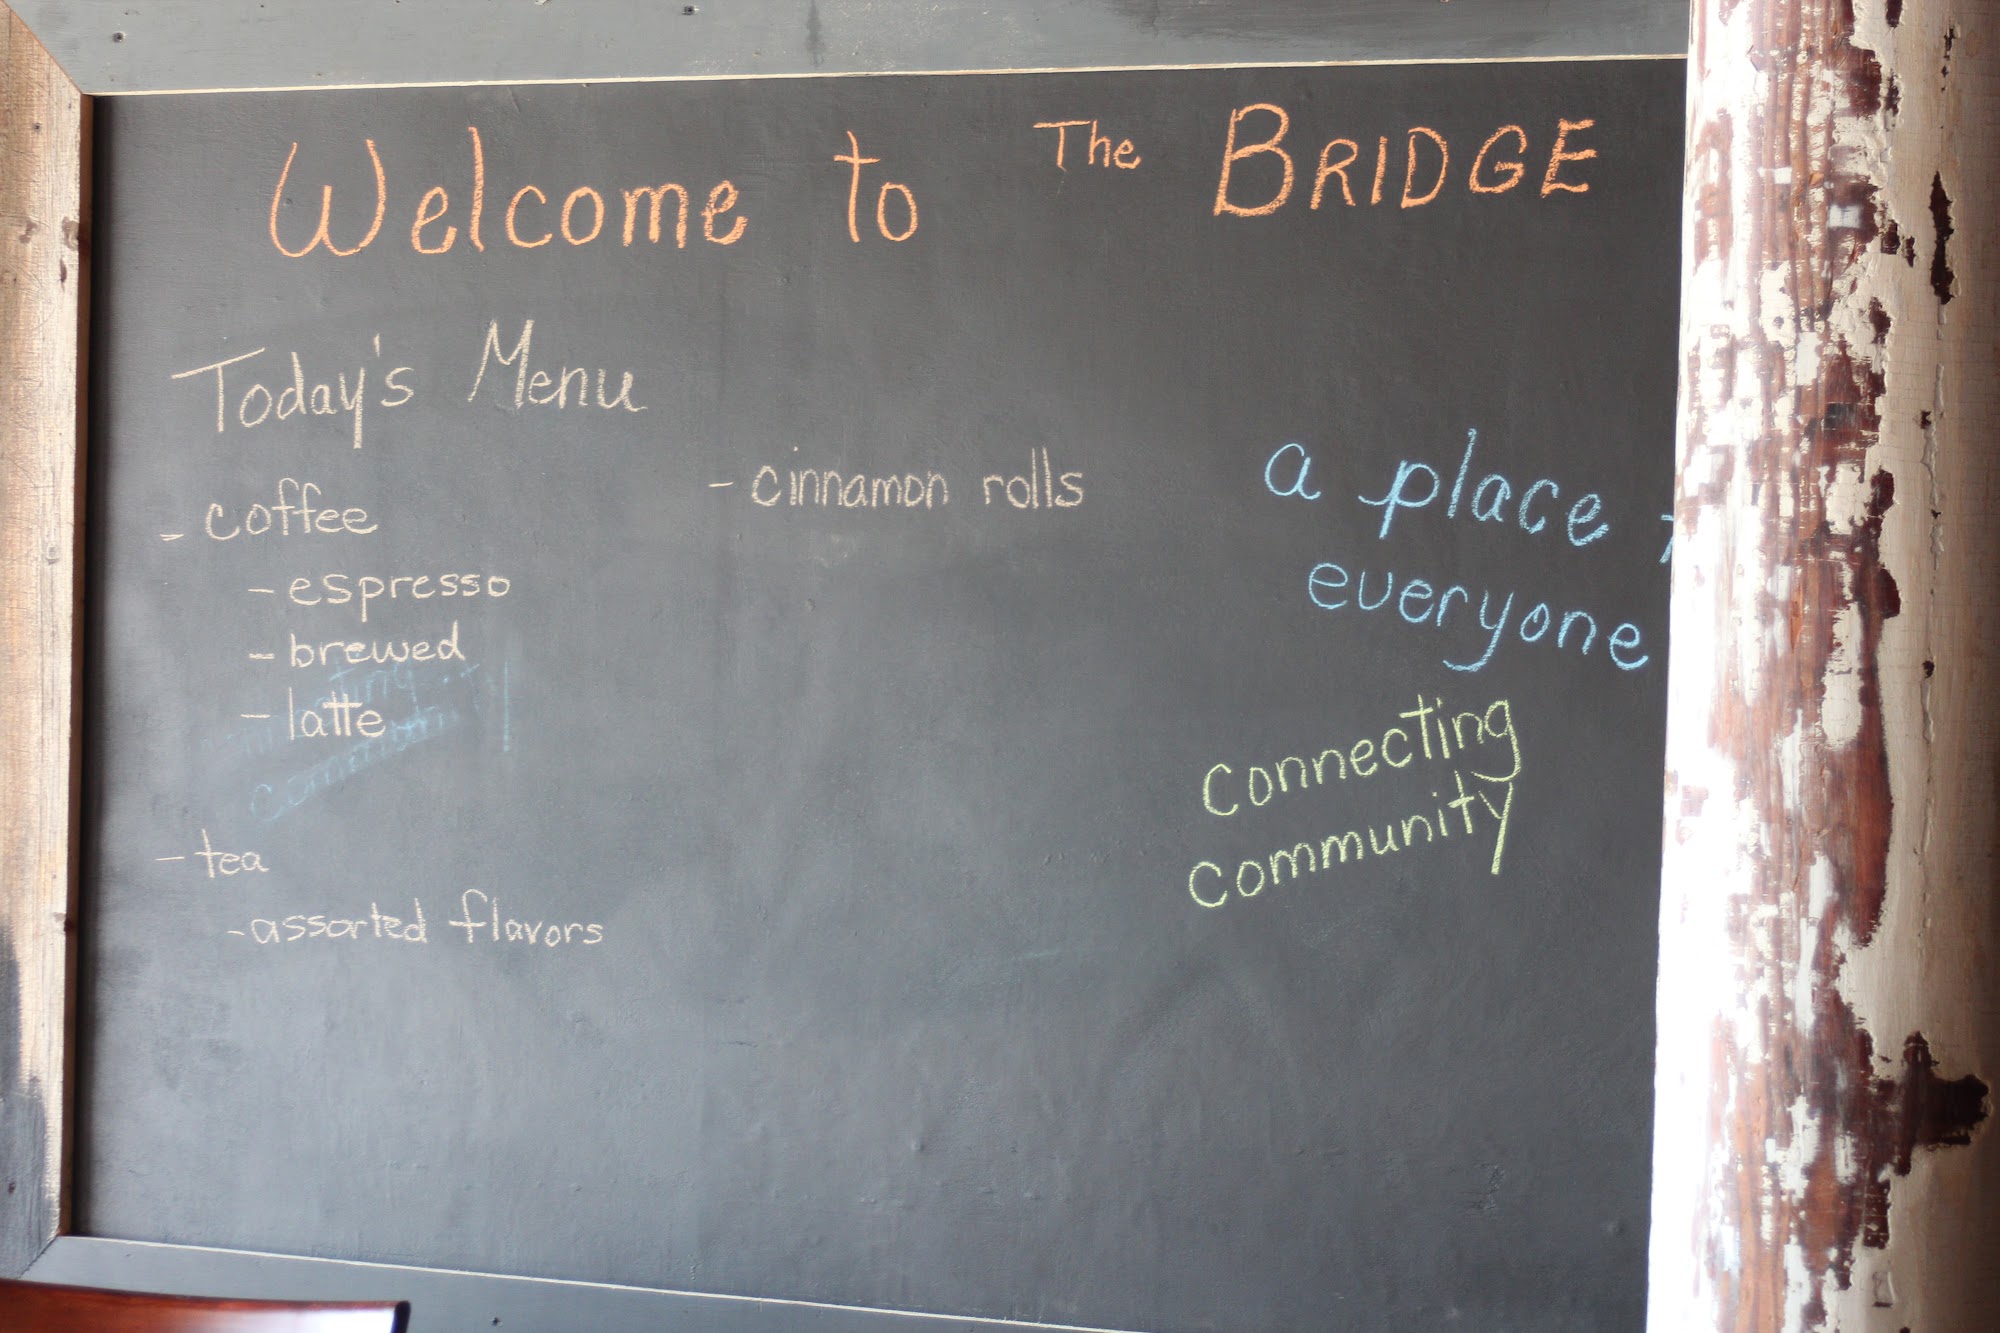 Welcome to The BRIDGE
Today's Menu
- coffee
- espresso
- brewed
- latte
- tea
- assorted flavors
- cinnamon rolls
a place
everyone
connecting
community
community